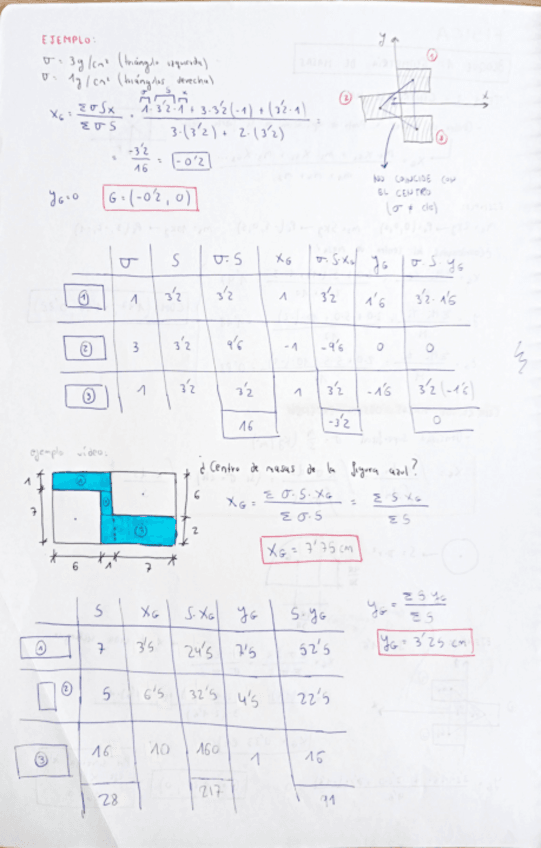 EJEMPLO:
σ = 3g/cm² (triángulo izquierda)
σ = 1g/cm² (triángulos derecha)
σ S x
X_G = Σσ S x / Σ σ S = 1·3'2·1 + 3·3'2(-1) + (3'2·1) / 3·(3'2) + 2·(3'2) =
= -3'2 / 16 = -0'2
y_G = 0 G = (-0'2, 0)
y
x
①
②
③
NO COINCIDE CON
EL CENTRO
(σ ≠ cte)
σ S σ·S X_G σ·S X_G y_G σ·S·y_G
① 1 3'2 3'2 1 3'2 1'6 3'2·1'6
② 3 3'2 9'6 -1 -9'6 0 0
③ 1 3'2 3'2 1 3'2 -1'6 3'2(-1'6)
16 -3'2 0
ejemplo vídeo:
¿Centro de masas de la figura azul?
1
7
6
2
6 1 7
①
②
③
X_G = Σ σ·S·X_G / Σ σ·S = Σ S X_G / Σ S
X_G = 7'75 cm
S X_G S·X_G y_G S·y_G
① 7 3'5 24'5 7'5 52'5
② 5 6'5 32'5 4'5 22'5
③ 16 10 160 1 16
28 217 91
y_G = Σ S y_G / Σ S
y_G = 3'25 cm